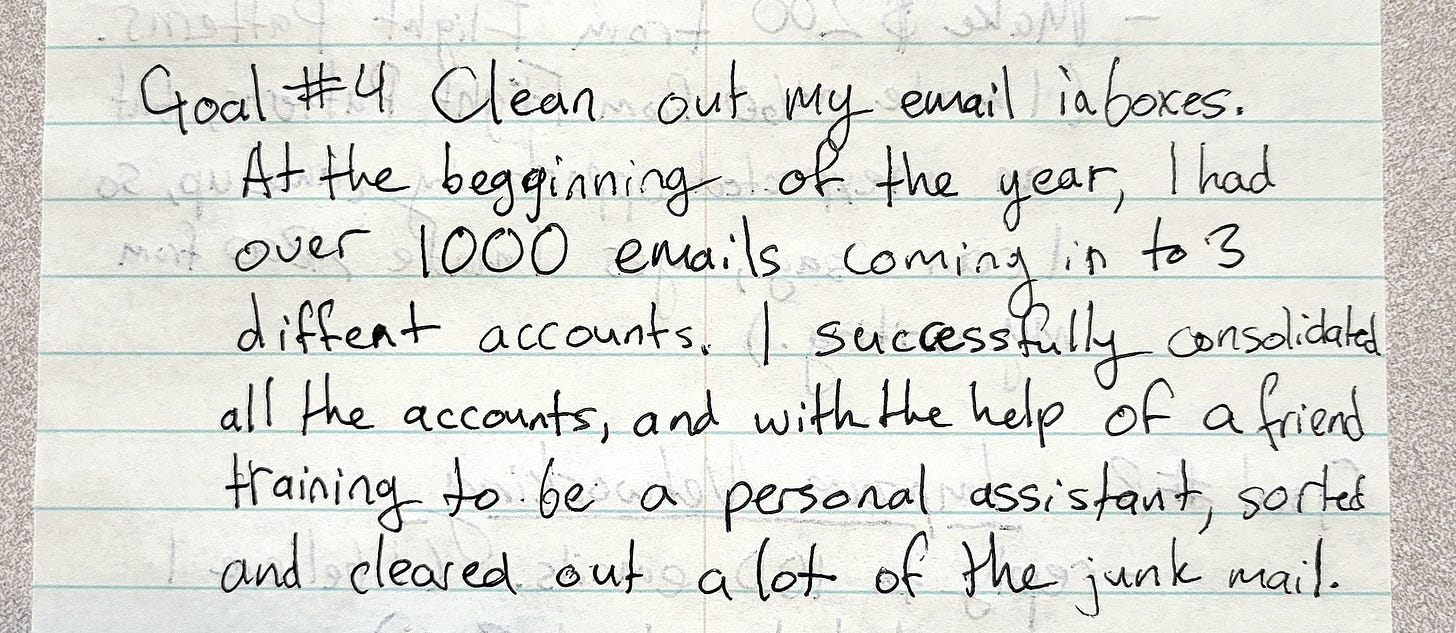 Goal #4 Clean out my email inboxes.
At the begginning of the year, I had
over 1000 emails coming in to 3
diffent accounts. I successfully consolidated
all the accounts, and with the help of a friend
training to be a personal assistant, sorted
and cleared out a lot of the junk mail.